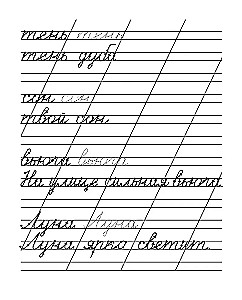 тень тень
тень дуба
сон сон
твой сон
вьюга вьюга
На улице сильная вьюга.
Луна Луна
Луна ярко светит.